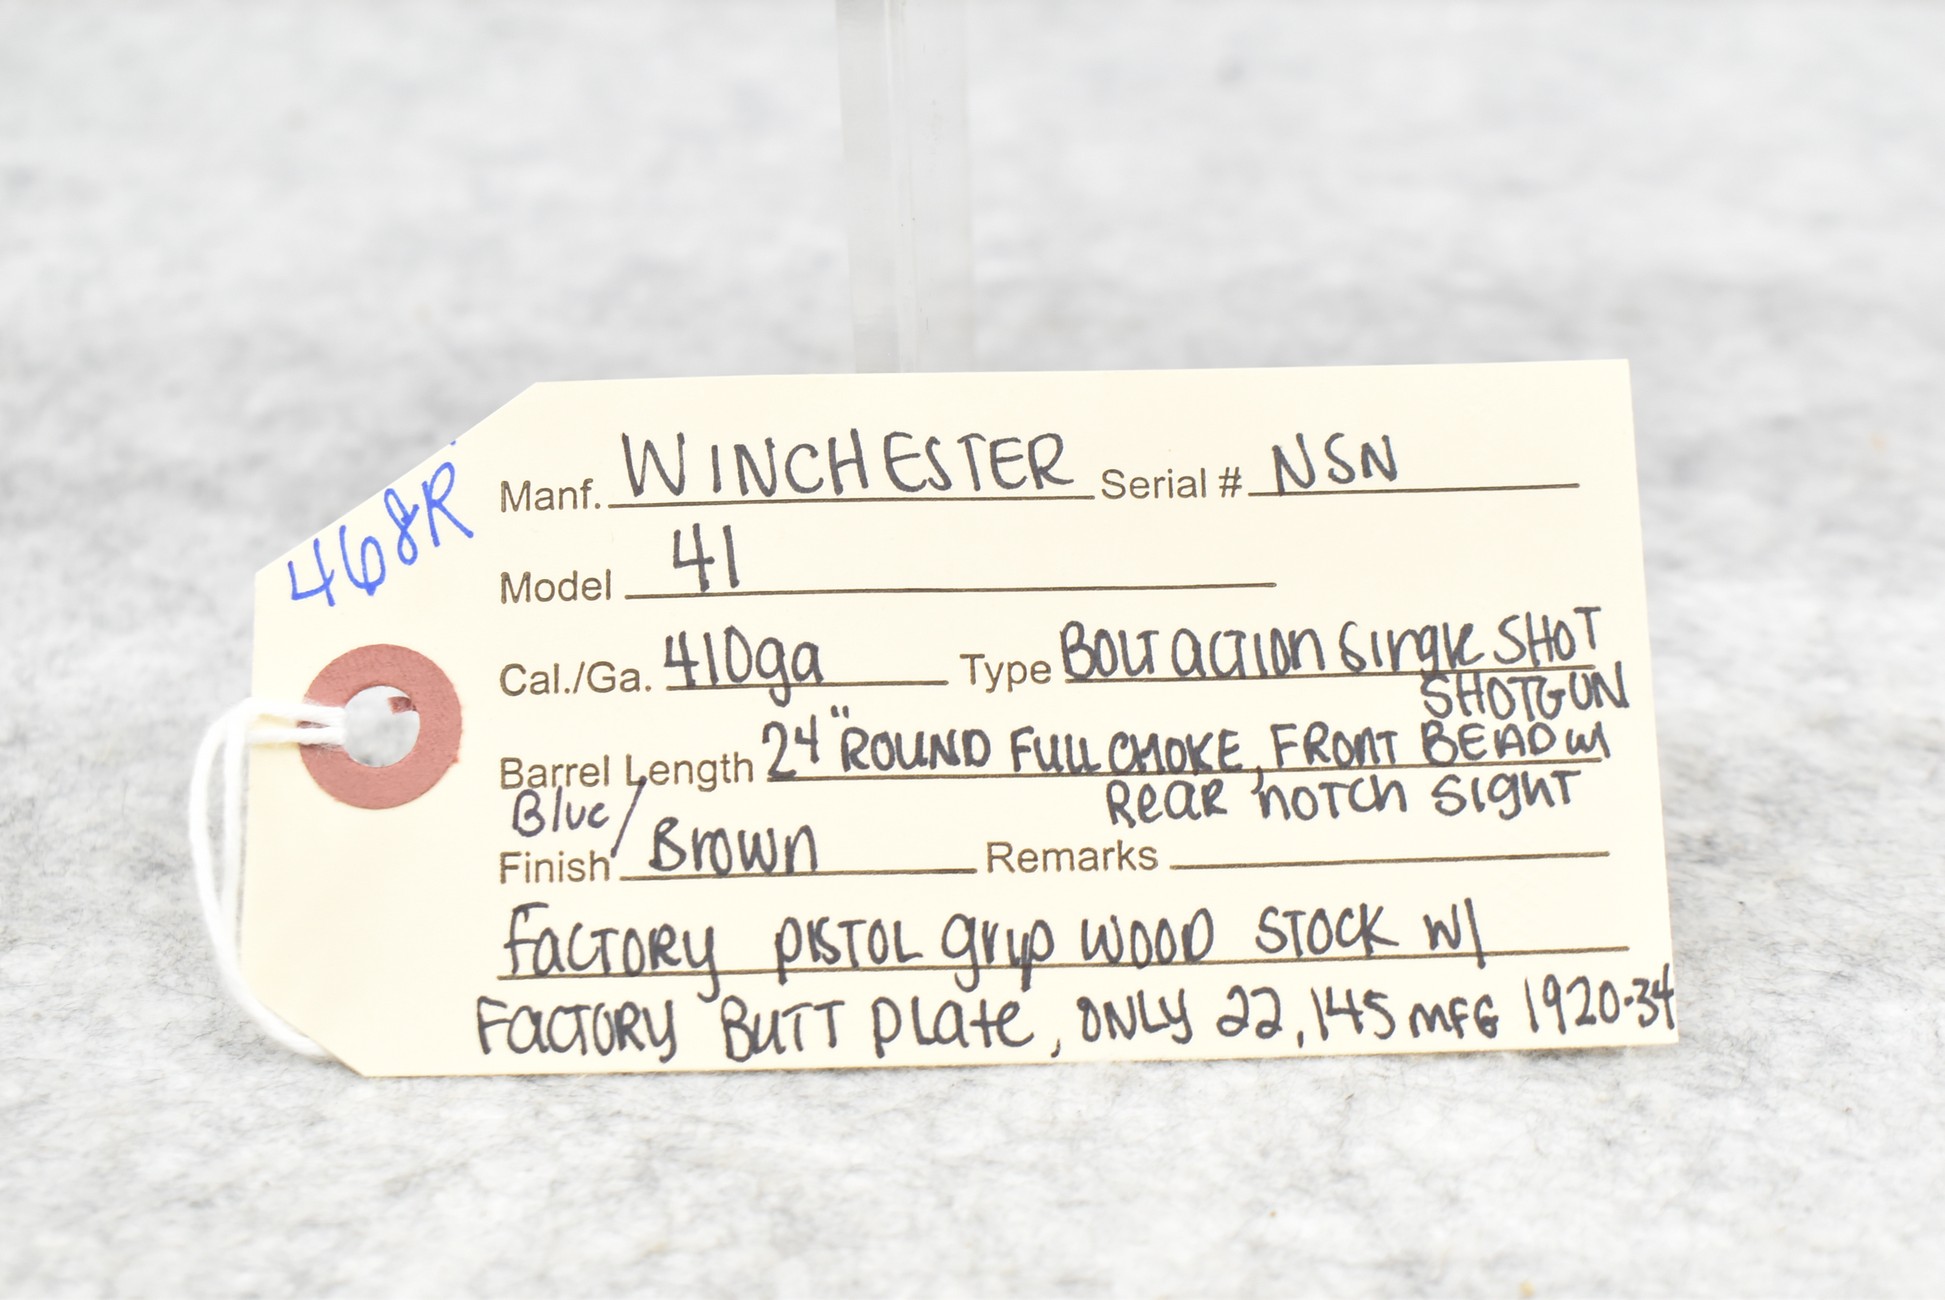 468R
Manf. WINCHESTER Serial # NSN
Model 41
Cal./Ga. 410ga Type BOLT ACTION Single SHOT
SHOTGUN
Barrel Length 24" ROUND FULL CHOKE, FRONT BEAD W/
REAR NOTCH SIGHT
Blue/
Finish Brown Remarks
FACTORY PISTOL grip WOOD STOCK W/
FACTORY BUTT PLATE, ONLY 22,145 MFG 1920-34